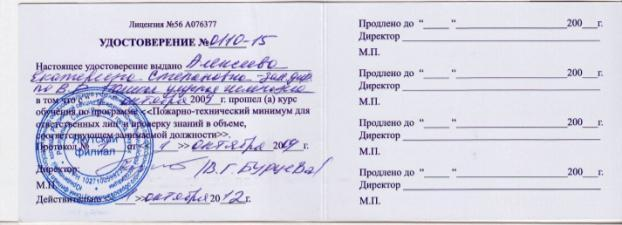 Лицензия №56 А076377
УДОСТОВЕРЕНИЕ №0110-15
Настоящее удостоверение выдано Алексеева
Екатерина Степановна - зам дир.
по В.Р.
в том что с октября 2009 г. прошел (а) курс
обучения по программе <<Пожарно-технический минимум для
ответственных лиц и проверку знаний в объеме,
соответствующем занимаемой должности>>.
Протокол № от 1 >> октября 2009 г.
Директор: (В.Г. Бурцева)
М.П.
Действительно << >> октября 2012 г.
Якутский
филиал
Продлено до “ ” 200 г.
Директор
М.П.
Продлено до “ ” 200 г.
Директор
М.П.
Продлено до “ ” 200 г.
Директор
М.П.
Продлено до “ ” 200 г.
Директор
М.П.